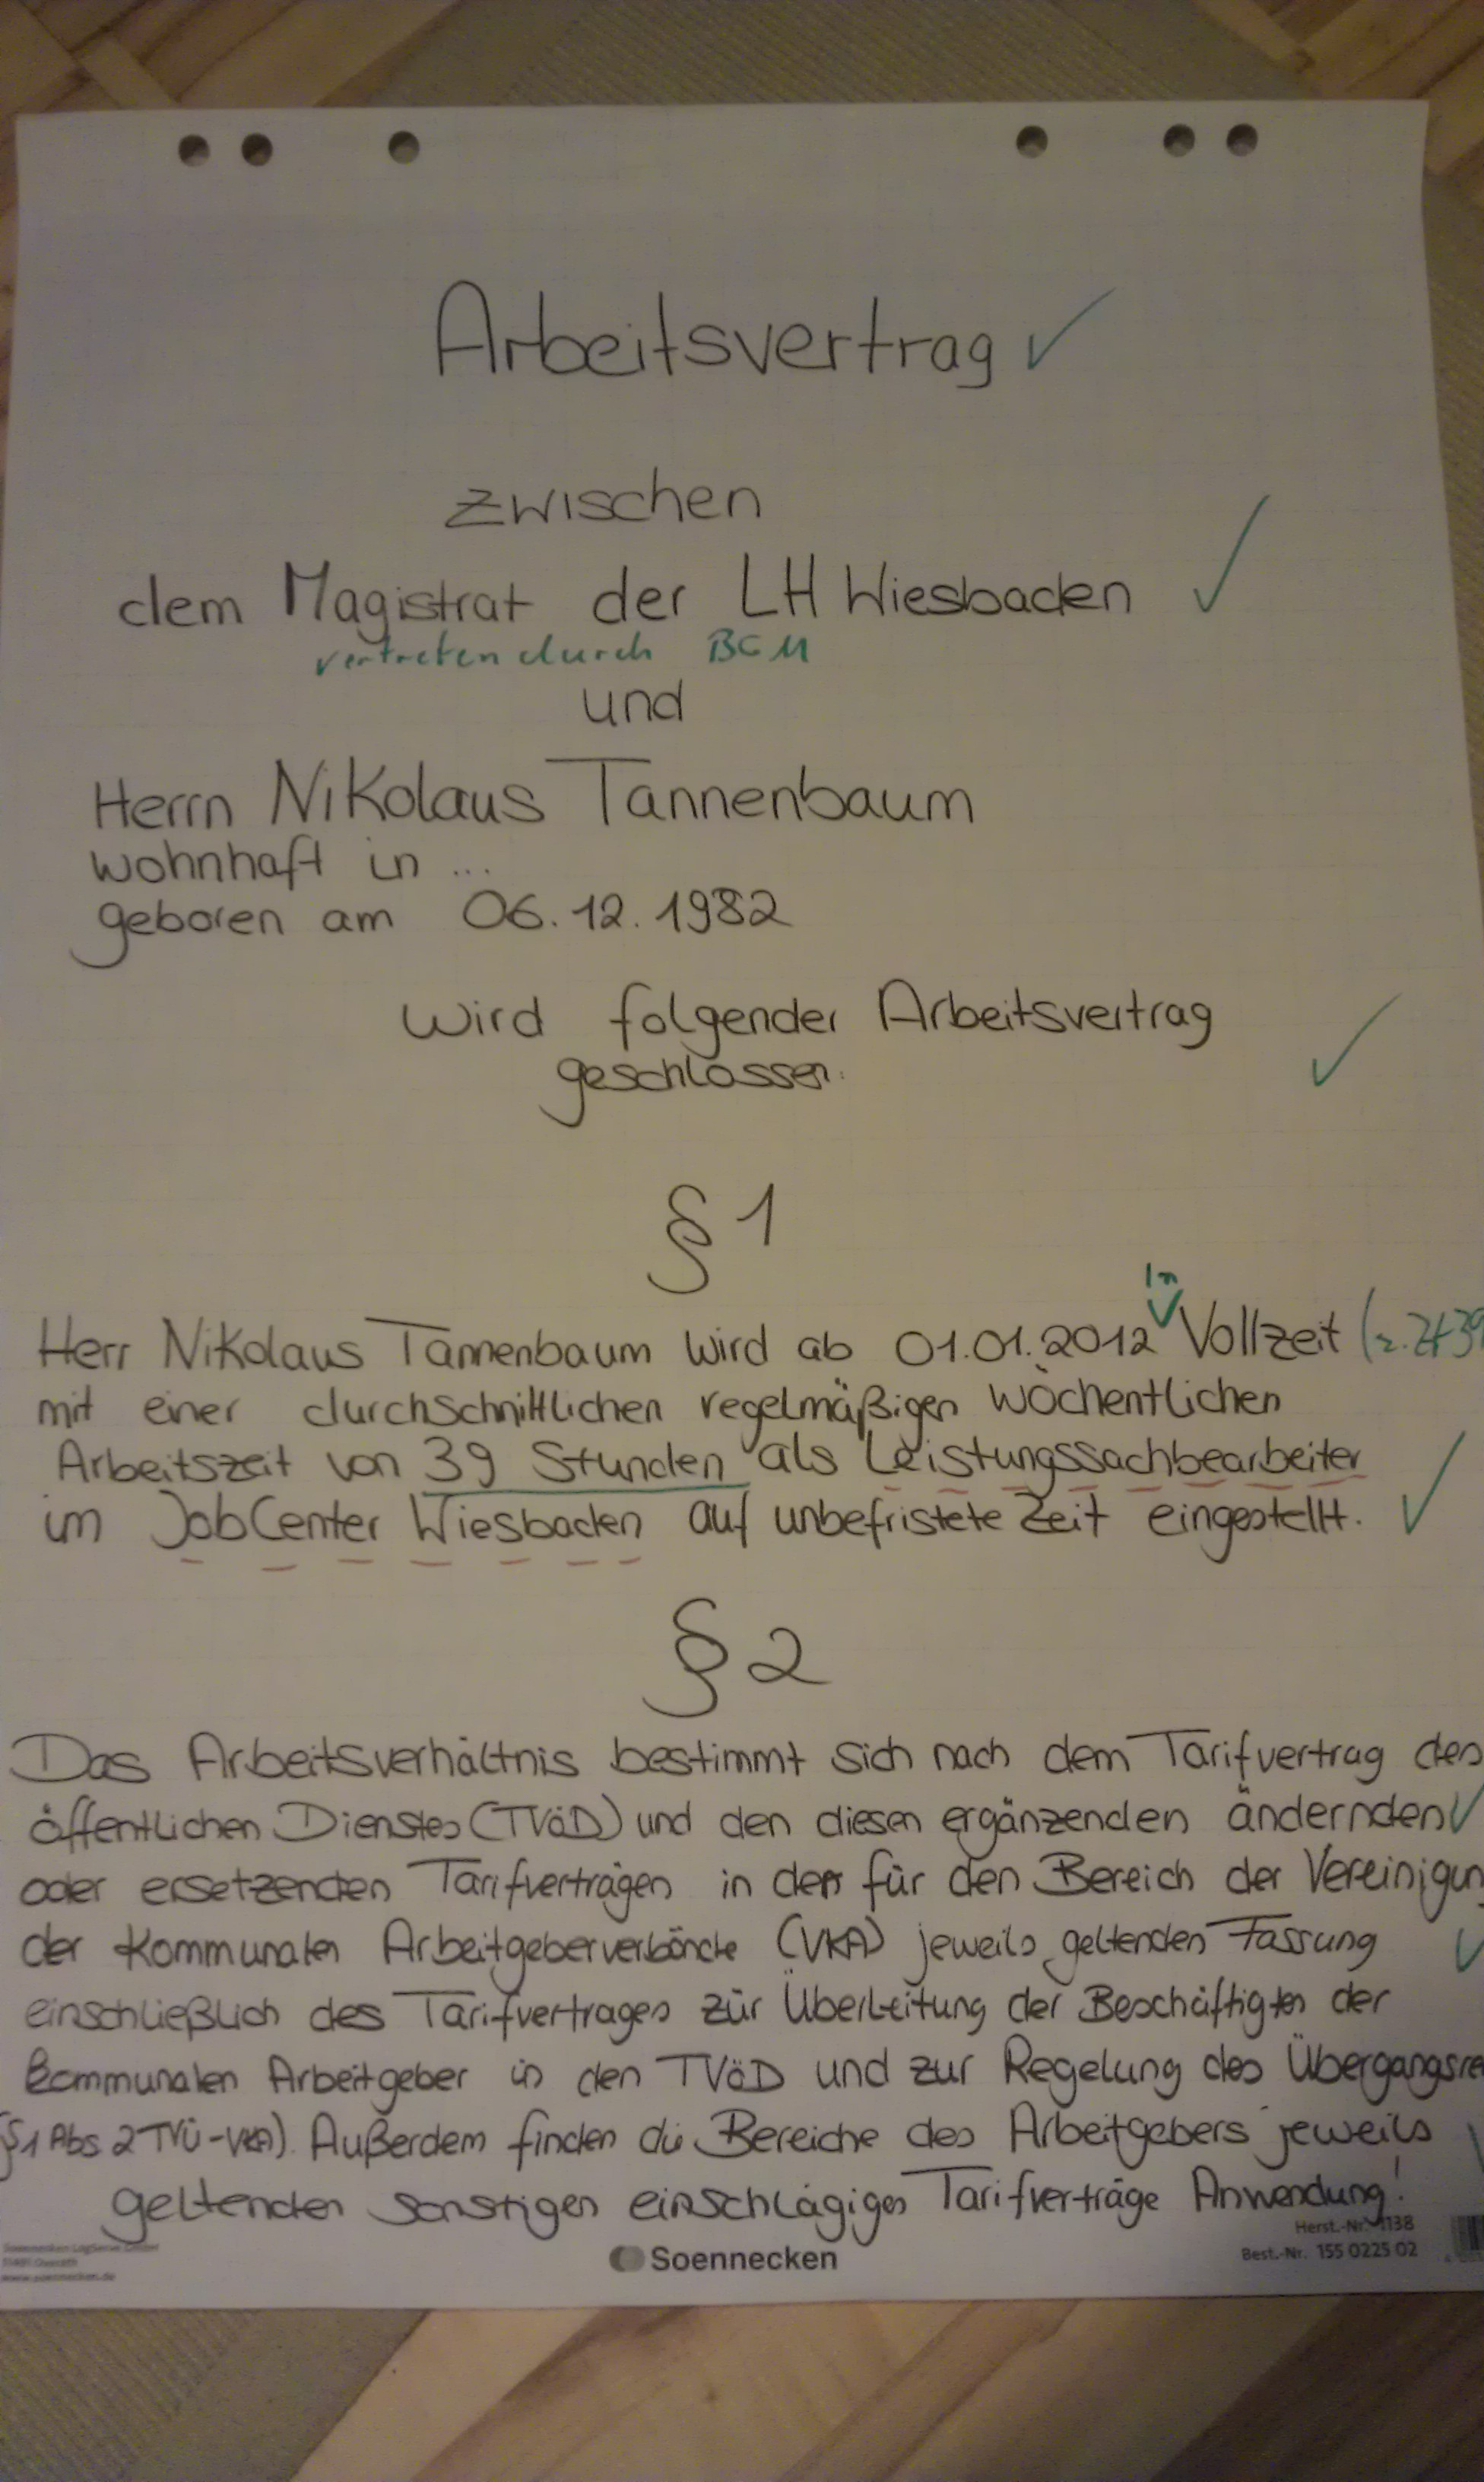 Arbeitsvertrag
zwischen
dem Magistrat der LH Wiesbaden
vertreten durch BGM
und
Herrn Nikolaus Tannenbaum
wohnhaft in ...
geboren am 06.12.1982
wird folgender Arbeitsvertrag
geschlossen:
§ 1
in
Herr Nikolaus Tannenbaum wird ab 01.01.2012 Vollzeit (z. Zt 39
mit einer durchschnittlichen regelmäßigen wöchentlichen
Arbeitszeit von 39 Stunden als Leistungssachbearbeiter
im JobCenter Wiesbaden auf unbefristete Zeit eingestellt.
§ 2
Das Arbeitsverhältnis bestimmt sich nach dem Tarifvertrag des
öffentlichen Dienstes (TVöD) und den diesen ergänzenden ändernden
oder ersetzenden Tarifverträgen in der für den Bereich der Vereinigun
der kommunalen Arbeitgeberverbände (VKA) jeweils geltenden Fassung
einschließlich des Tarifvertrages zur Überleitung der Beschäftigten der
kommunalen Arbeitgeber in den TVöD und zur Regelung des Übergangsre
(§1 Abs 2 TVÜ-VKA). Außerdem finden die Bereiche des Arbeitgebers jeweils
geltenden sonstigen einschlägigen Tarifverträge Anwendung!
Herst.-Nr. 1138
Soennecken
Best.-Nr. 155 0225 02
www.soennecken.de